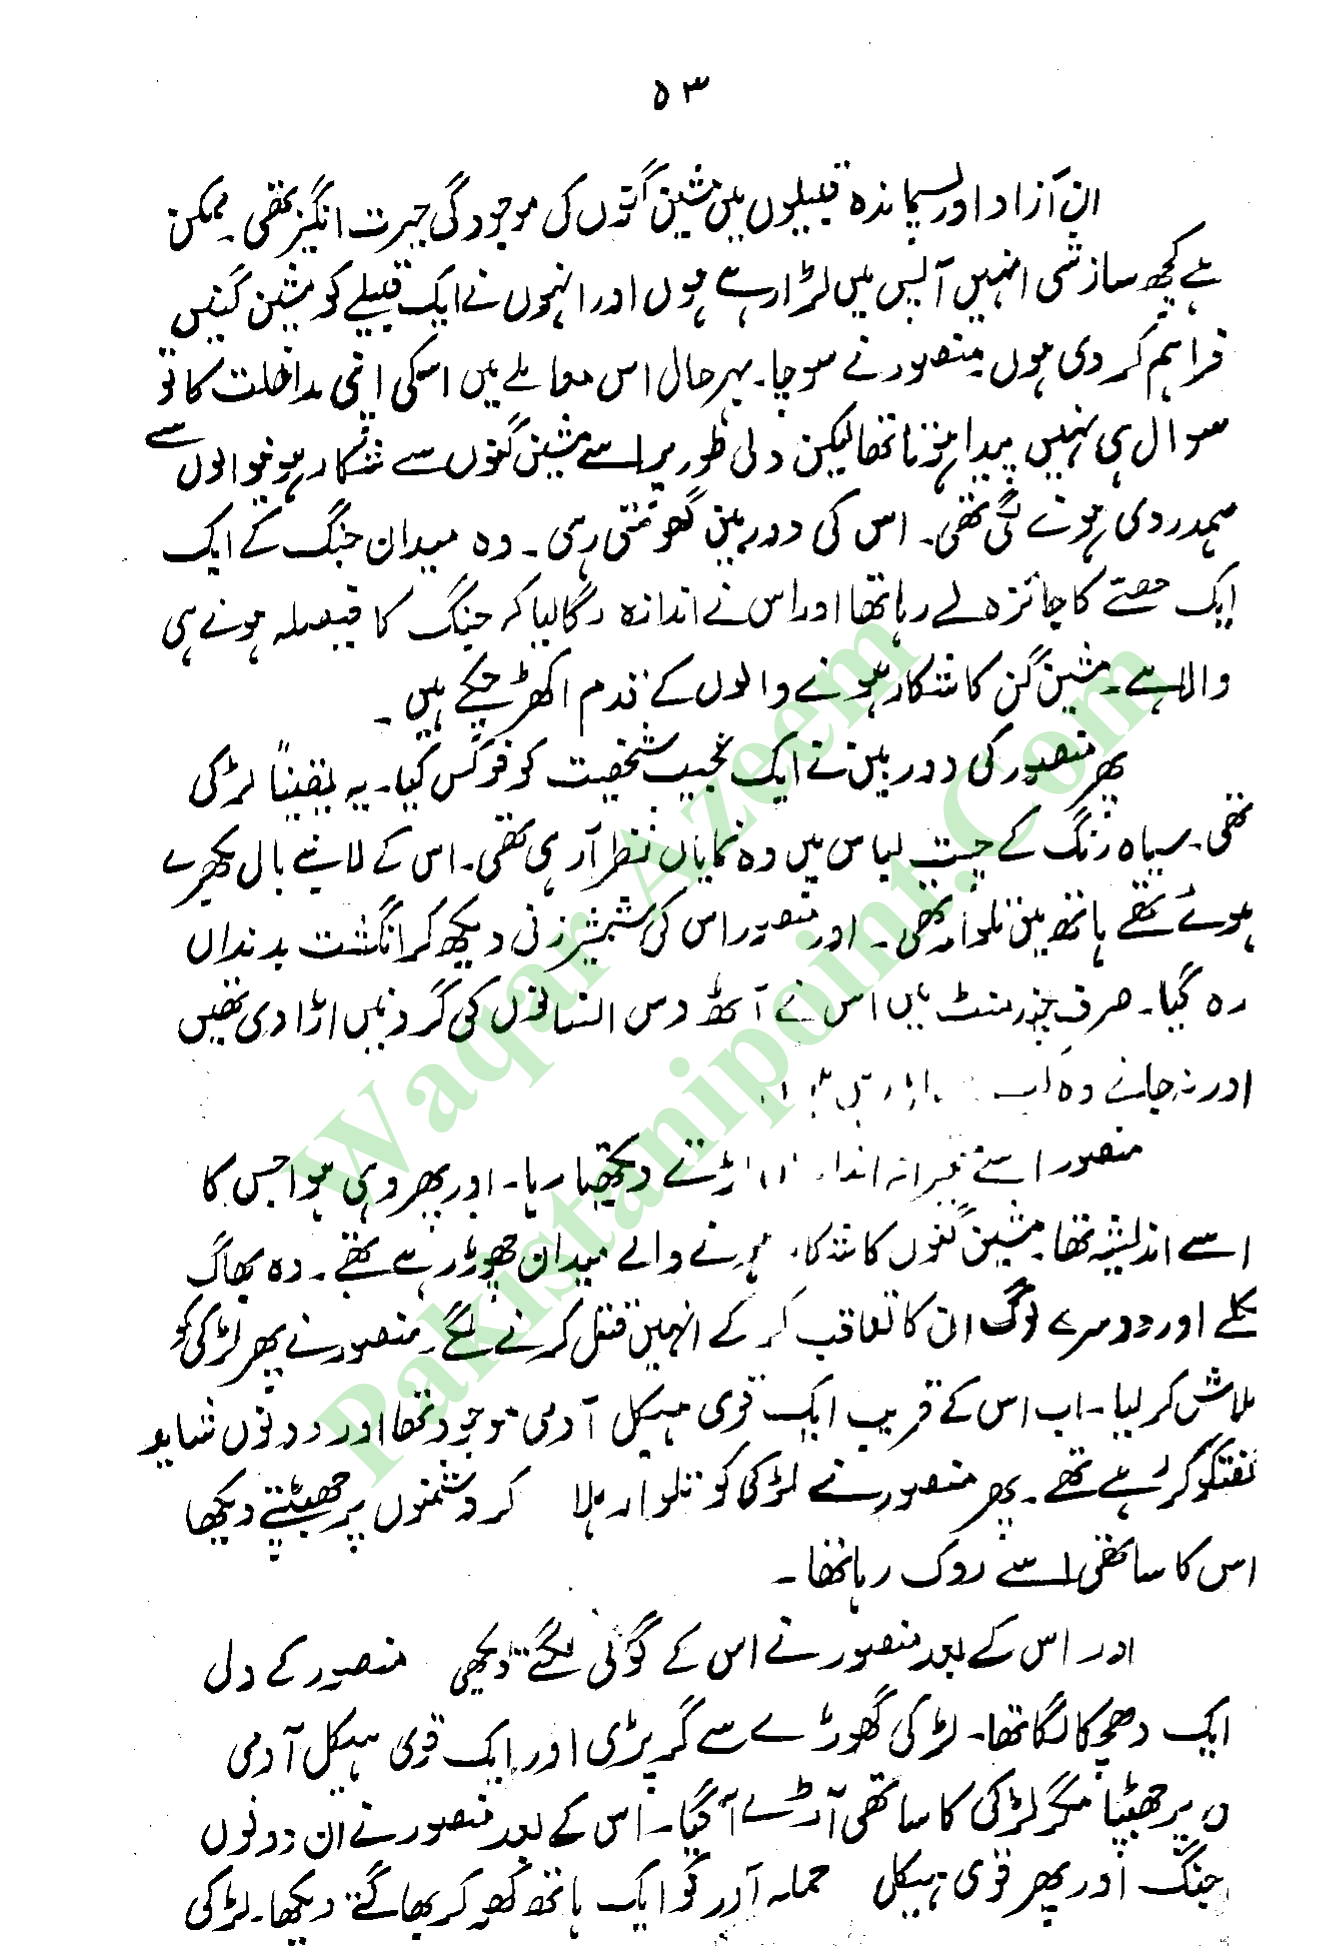 ۵۳
ان آزاد اور پسماندہ قبیلوں میں مشین گنوں کی موجودگی حیرت انگیز تھی۔ ممکن
ہے کچھ سازشی انہیں آپس میں لڑا رہے ہوں اور انہوں نے ایک قبیلے کو مشین گنیں
فراہم کر دی ہوں۔ منصور نے سوچا۔ بہرحال اس معاملے میں اسکی اپنی مداخلت کا تو
سوال ہی نہیں پیدا ہوتا تھا لیکن دلی طور پر اسے مشین گنوں سے شکار ہونیوالوں سے
ہمدردی ہونے لگی تھی۔ اس کی دوربین گھومتی رہی۔ وہ میدان جنگ کے ایک
ایک حصے کا جائزہ لے رہا تھا اور اس نے اندازہ لگا لیا کہ جنگ کا فیصلہ ہونے ہی
والا ہے۔ مشین گن کا شکار ہونے والوں کے قدم اکھڑ چکے ہیں۔
پھر منصور کی دوربین نے ایک عجیب شخصیت کو فوکس کیا۔ یہ یقیناً لڑکی
تھی۔ سیاہ رنگ کے چست لباس میں وہ نمایاں نظر آ رہی تھی۔ اس کے لانبے بال بکھرے
ہوئے تھے ہاتھ میں تلوار تھی۔ اور منصور اس کی شمشیر زنی دیکھ کر انگشت بدنداں
رہ گیا۔ صرف چند منٹ میں اس نے آٹھ دس انسانوں کی گردنیں اڑا دی تھیں
اور نہ جانے وہ کب
منصور اسے لڑتے دیکھتا رہا۔ اور پھر وہی ہوا جس کا
اسے اندیشہ تھا۔ مشین گنوں کا شکار ہونے والے میدان چھوڑ رہے تھے۔ وہ بھاگ
نکلے اور دوسرے لوگ ان کا تعاقب کر کے انہیں قتل کرنے لگے۔ منصور نے پھر لڑکی کو
تلاش کر لیا۔ اب اس کے قریب ایک قوی ہیکل آدمی موجود تھا اور دونوں شاید
گفتگو کر رہے تھے۔ پھر منصور نے لڑکی کو تلوار ہلا کر دشمنوں پر جھپٹتے دیکھا
اس کا ساتھی اسے روک رہا تھا۔
اور اس کے بعد منصور نے اس کے گولی لگتے دیکھی منصور کے دل
ایک دھچکا لگا تھا۔ لڑکی گھوڑے سے گر پڑی اور ایک قوی ہیکل آدمی
پر جھپٹا مگر لڑکی کا ساتھی آڑے آ گیا۔ اس کے بعد منصور نے ان دونوں
جنگ اور پھر قوی ہیکل حملہ آور کو ایک ہاتھ کھو کر بھاگتے دیکھا۔ لڑکی
Waqar Azeem
Pakistanipoint.Com